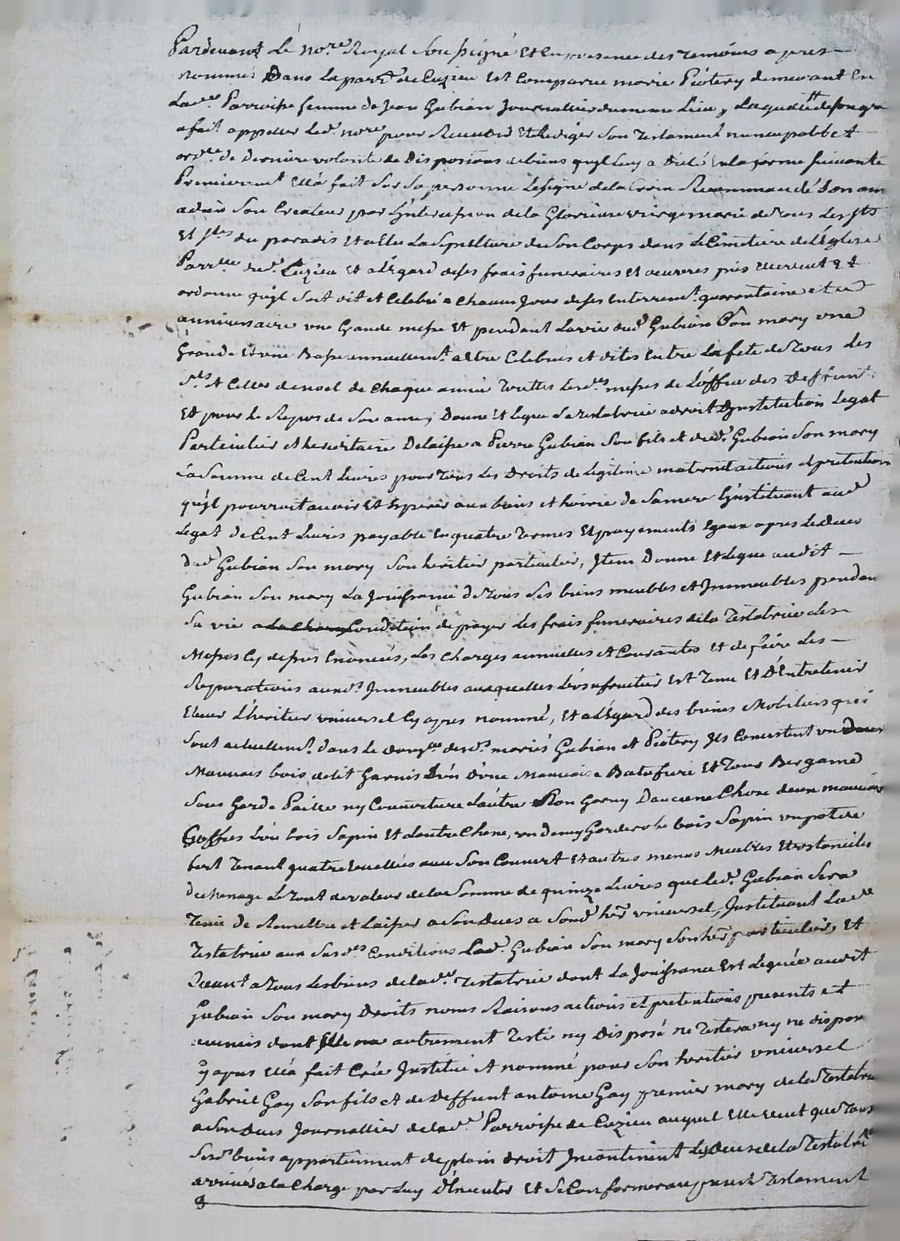 Pardevant Le no.re Royal Soussigné Et En presence des Temoins apres
nommés Dans La parr.e de Cuzieu est Comparue marie Piotery demeurant En
La d.e Parroisse femme de Jean Gubian Journallier du meme Lieu, Laquelle de son gré
a fait appeller Led. no.re pour Recevoir Et Rediger Son Testament nuncupatif Et
ord.re de Derniere volonté de Disposions de biens qu'elle Luy a Dicté En la forme Suivante
Premierem.t Ella fait Sur Sa personne Le signe de la Croix Recommandé Son am
a dieu Son Createur par L'intercession de la Glorieuse vierge marie de Tous Les S.ts
Et S.tes du paradis Et a Elu La Sepulture de Son Corps dans Le Cimetiere de L'Eglise
Parr.lle dud. Cuzieu Et a L'Egard de ses frais funeraires Et oeuvres pies Elle veut Et
ordonne qu'il Soit dit et Celebré a Chacun Jour de ses Enterrem.t quarantaine et
anniversaire une Grande messe Et pendant La vie dud. Gubian Son mary une
Grande Et une Basse annuellem.t a Etre Celebrés Et dites Entre La fete de Tous Les
S.ts Et Celles de noel de Chaque année Touttes Lesd.es messes de L'office des Deffunt
Et pour Le Repos de Son ame, Donne Et Legue La Testatrice a droit D'institution Legat
Particulier Et hereditaire Delaisse a Pierre Gubian Son fils Et dud. Gubian Son mary
La Somme de Cent Livres pour Tous Les Droits de Legitime maternel actions Et pretentions
qu'il pourroit avoir Et Esperer aux biens Et hoirie de Sa mere L'instituant aud.
Legat de Cent Livres payable En quatre Termes Et payements Egaux apres Le Deces
dud. Gubian Son mary Son héritier particulier, Item Donne Et Legue audit
Gubian Son mary La Jouissance de Tous Ses biens meubles et Immeubles pendan
Sa vie a la Charge Condition de payer Les frais funeraires de la Testatrice Les
Messes Cy dessus Enoncés, Les Charges annuelles Et Courantes Et de faire Les
Reparations auxd. Immeubles auxquelles L'usufruitier Est Tenu Et D'Entretenir
L'heritier universel Cy apres nommé, Et a L'Egard des biens Mobiliers qui
Sont actuellem.t dans Le desd. mariés Gubian Et Piotery Ils Consistent un
Mauvais bois de lit Garnis D'une Mauvaise Et Tour Bergame
Sans Garde Paille ny Couverture L'autre Non Garny D'aucune Chose deux mauvais
Coffres L'un bois Sapin Et L'autre Chene, un Demy Garderobe bois Sapin un pot de
Tenant quatre avec Son Couvert Et autres menus Meubles Et ustenciles
De Menage Le Tout de valeur de la Somme de quinze Livres que Led. Gubian Sera
Tenu de Remettre Et Laisser a Son Deces a Sond. her. universel, Instituant Lad.e
Testatrice aux Susd.es Conditions Led. Gubian Son mary Son her. particulier, Et
Quant a Tous Les biens de lad.e Testatrice dont La Jouissance Est Leguée audit
Gubian Son mary Droits noms Raisons actions et pretentions presents et
avenir dont Elle n'a autrement Testé ny Disposé ne Testera ny ne dispos
cy apres Ella fait Créé Institué Et nommé pour Son heritier universel
Gabriel Gay Son fils Et de Deffunt antoine Gay premier mary de lad. Testatri
a Son Deces Journallier de lad.e Parroisse de Cuzieu auquel Elle veut que Tous
Sesd. biens appartiennent de plain droit Incontinent Le Deces de la Testatri
arrivé a la Charge par Luy D'Executer Et Se Conformer au present Testament